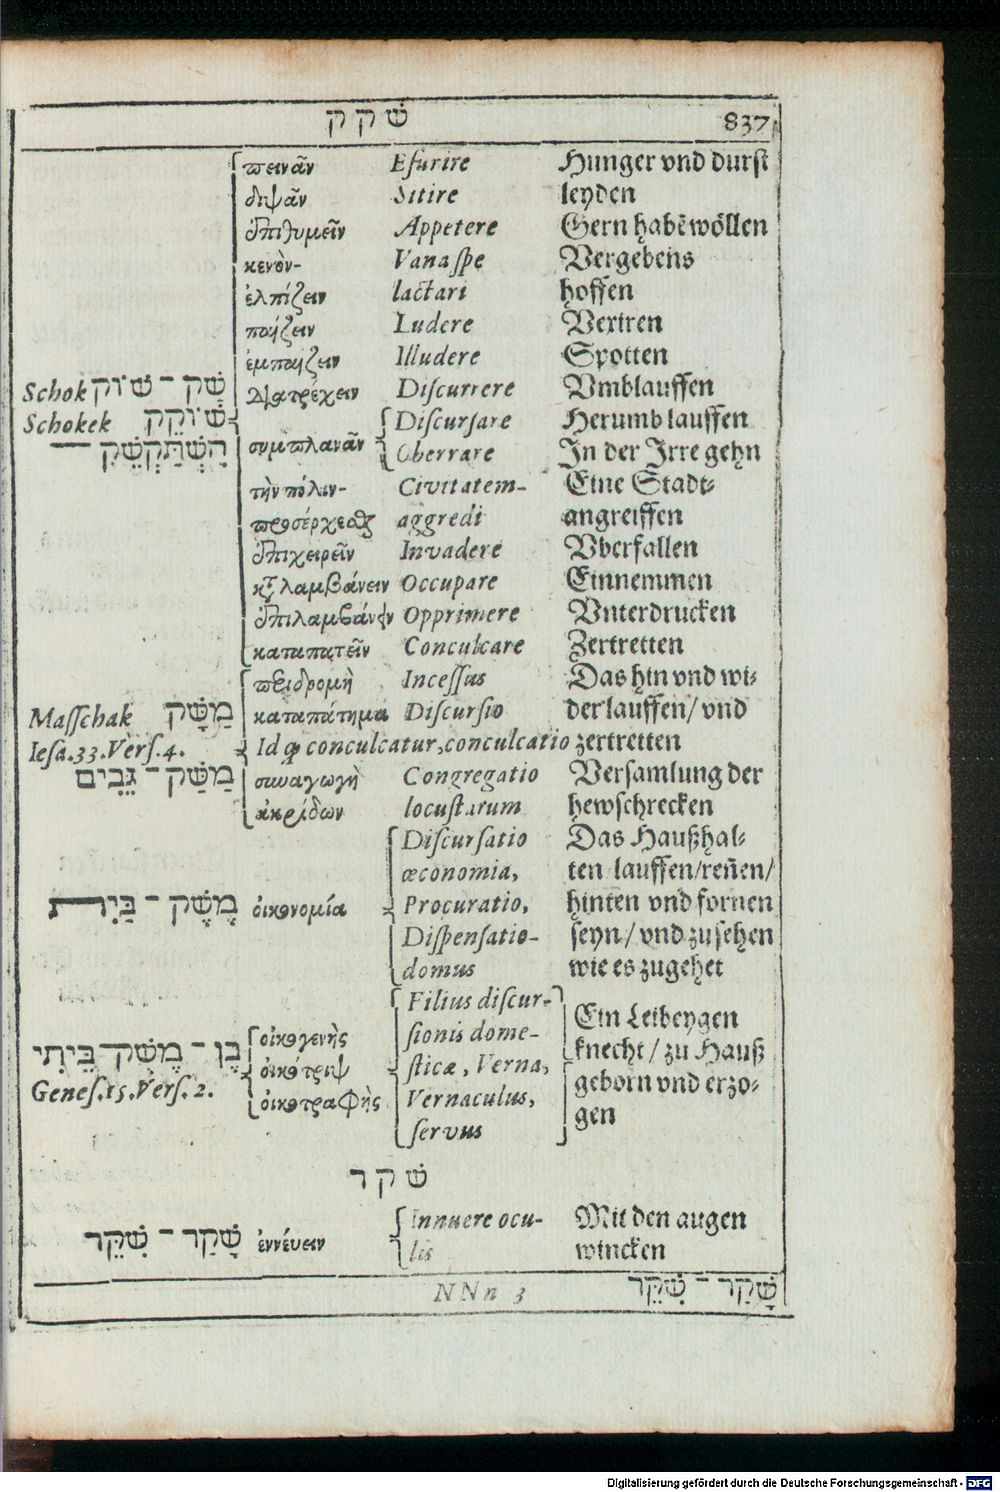 שׁקק 837
πεινᾶν Esurire Hunger vnd durst
διψᾶν Sitire leyden
ἐπιθυμεῖν Appetere Gern habẽ wöllen
κενὸν- Vana spe Vergebens
ἐλπίζειν lactari hoffen
παίζειν Ludere Vexiren
ἐμπαίζειν Illudere Spotten
Schok שׁוֹק - שַׁק διατρέχειν Discurrere Vmblauffen
Schokek שׁוֹקֵק Discursare Herumb lauffen
הִשְׁתַּקְשֵׁק συμπλανᾶν Oberrare In der Irre gehn
τὴν πόλιν- Civitatem- Eine Stadt-
προσέρχεσθαι aggredi angreiffen
ἐπιχειρεῖν Invadere Vberfallen
καταλαμβάνειν Occupare Einnemmen
ἐπιλαμβάνειν Opprimere Vnterdrucken
καταπατεῖν Conculcare Zertretten
περιδρομὴ Incessus Das hin vnd wi-
Masschak מַשָּׁק καταπάτημα Discursio der lauffen/ vnd
Iesa.33.Vers.4. Id qp conculcatur, conculcatio zertretten
מַשַּׁק - גֵּבִים συναγωγὴ Congregatio Versamlung der
ἀκρίδων locustarum hewschrecken
Discursatio Das Haußhal-
œconomia, ten lauffen/reñen/
מֶשֶׁק - בַּיִת οἰκονομία Procuratio, hinten vnd fornen
Dispensatio- seyn/ vnd zusehen
domus wie es zugehet
Filius discur- Ein Leibeygen
οἰκογενὴς sionis dome- knecht/ zu Hauß
בֶּן - מֶשֶׁק בֵּיתִי οἰκοτριψ sticæ, Verna, geborn vnd erzo-
Genes.15.Vers.2. οἰκοτραφὴς Vernaculus, gen
servus
שׁקר
Innuere ocu- Mit den augen
שָׁקַר - שִׁקֵּר ἐννέυειν lis wincken
NNn 3 שָׁקַר - שִׁקֵּר
Digitalisierung gefördert durch die Deutsche Forschungsgemeinschaft - DFG